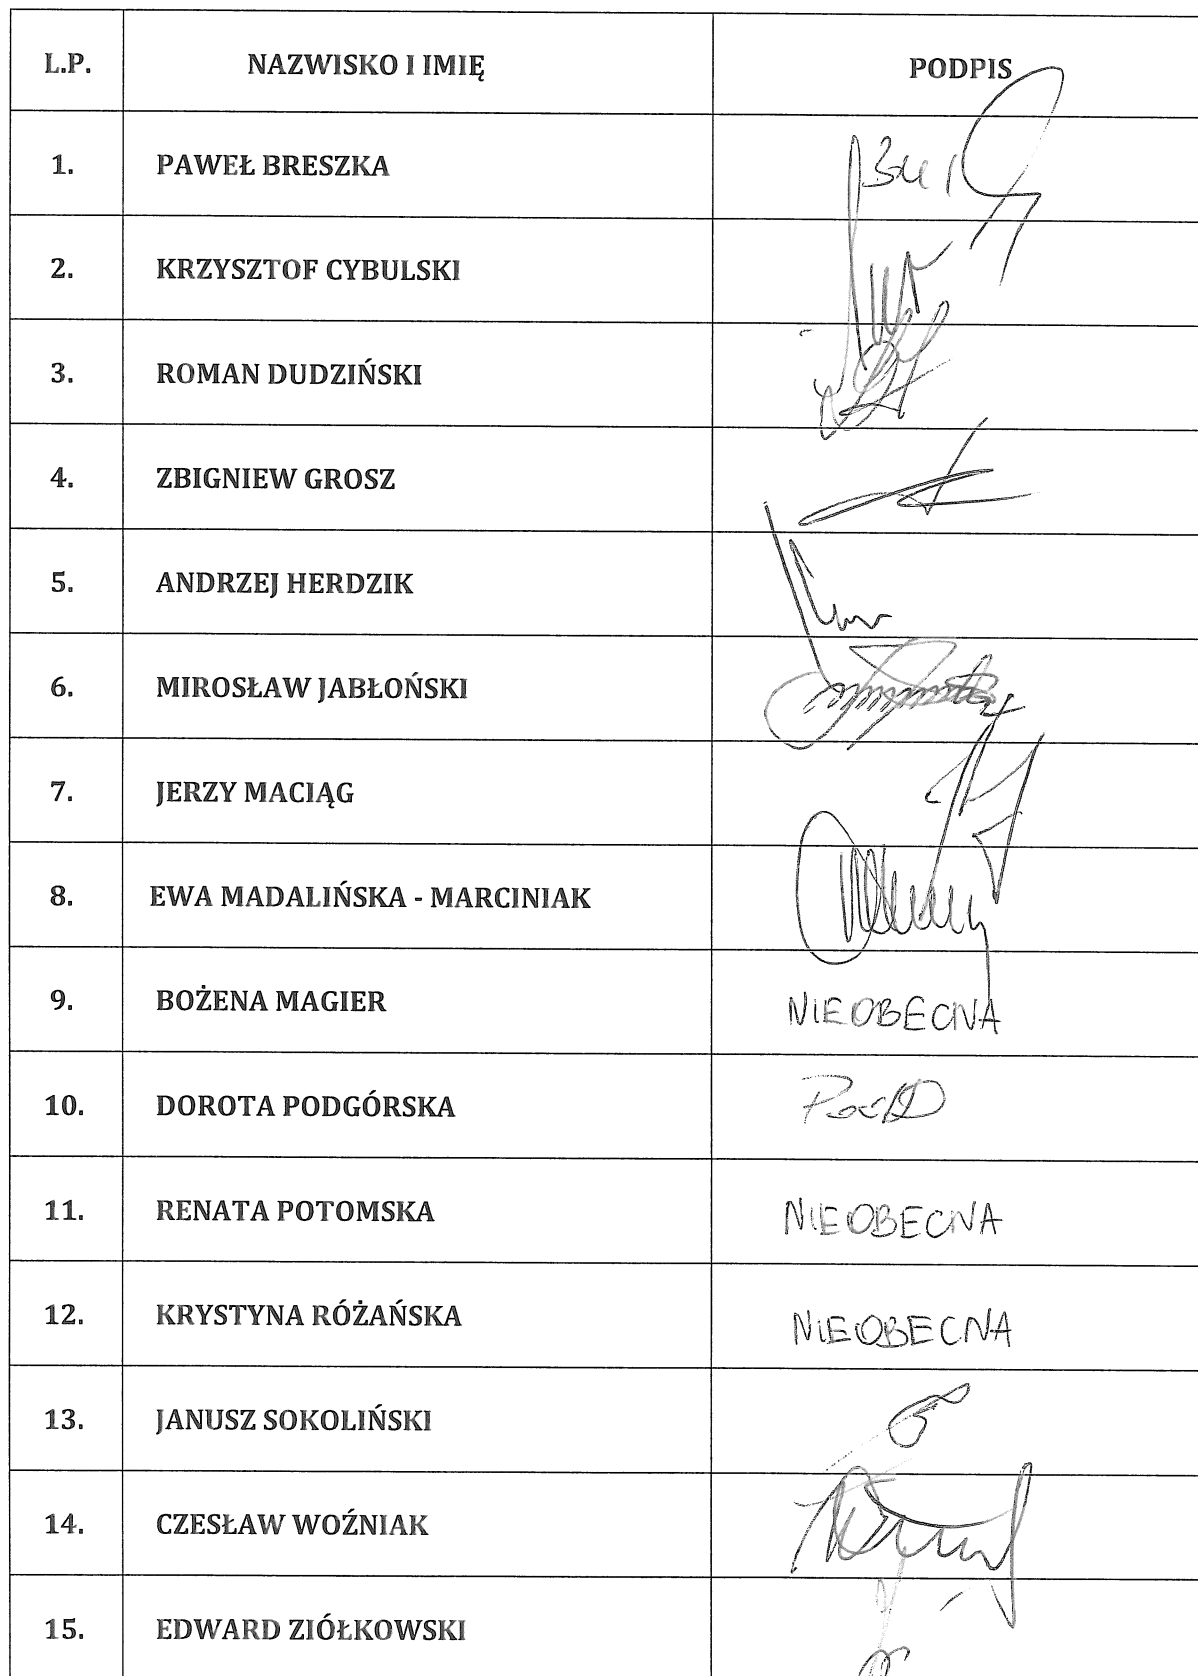 L.P. NAZWISKO I IMIĘ PODPIS
1. PAWEŁ BRESZKA
2. KRZYSZTOF CYBULSKI
3. ROMAN DUDZIŃSKI
4. ZBIGNIEW GROSZ
5. ANDRZEJ HERDZIK
6. MIROSŁAW JABŁOŃSKI
7. JERZY MACIĄG
8. EWA MADALIŃSKA - MARCINIAK
9. BOŻENA MAGIER NIEOBECNA
10. DOROTA PODGÓRSKA
11. RENATA POTOMSKA NIEOBECNA
12. KRYSTYNA RÓŻAŃSKA NIEOBECNA
13. JANUSZ SOKOLIŃSKI
14. CZESŁAW WOŹNIAK
15. EDWARD ZIÓŁKOWSKI